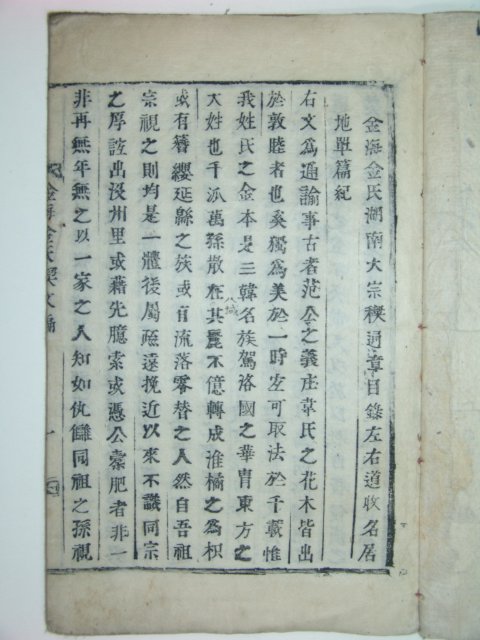 金海金氏湖南大宗稧通章目錄左右道收名居
地單篇紀
右文爲通諭事古者范公之義庄韋氏之花木皆出
於敦睦者也奚獨爲美於一時左可取法於千載惟
我姓氏之金本是三韓名族駕洛國之華胄東方之
大姓也千派萬孫散在其八域麗不億轉成淮橘之爲枳
或有簪纓延綿之族或有流落零替之人然自吾祖
宗視之則均是一體後屬疏遠挽近以來不識同宗
之厚誼出沒州里或藉先臆索或憑公橐肥者非一
非再無年無之以一家之人知如仇讎同祖之孫視
金海金氏稧文篇 一